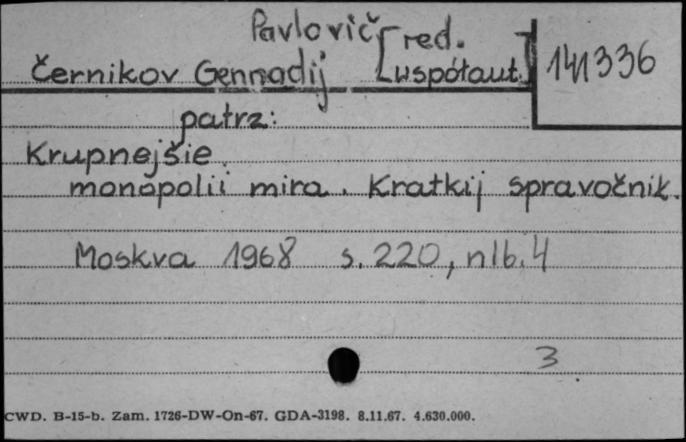 Pavlovič [red.
Černikov Gennadij [współaut.] 141336
patrz:
Krupnejšie
monopolii mira. Kratkij spravočnik.
Moskva 1968 s. 220, nlb. 4
3
CWD. B-15-b. Zam. 1726-DW-On-67. GDA-3198. 8.11.67. 4.630.000.